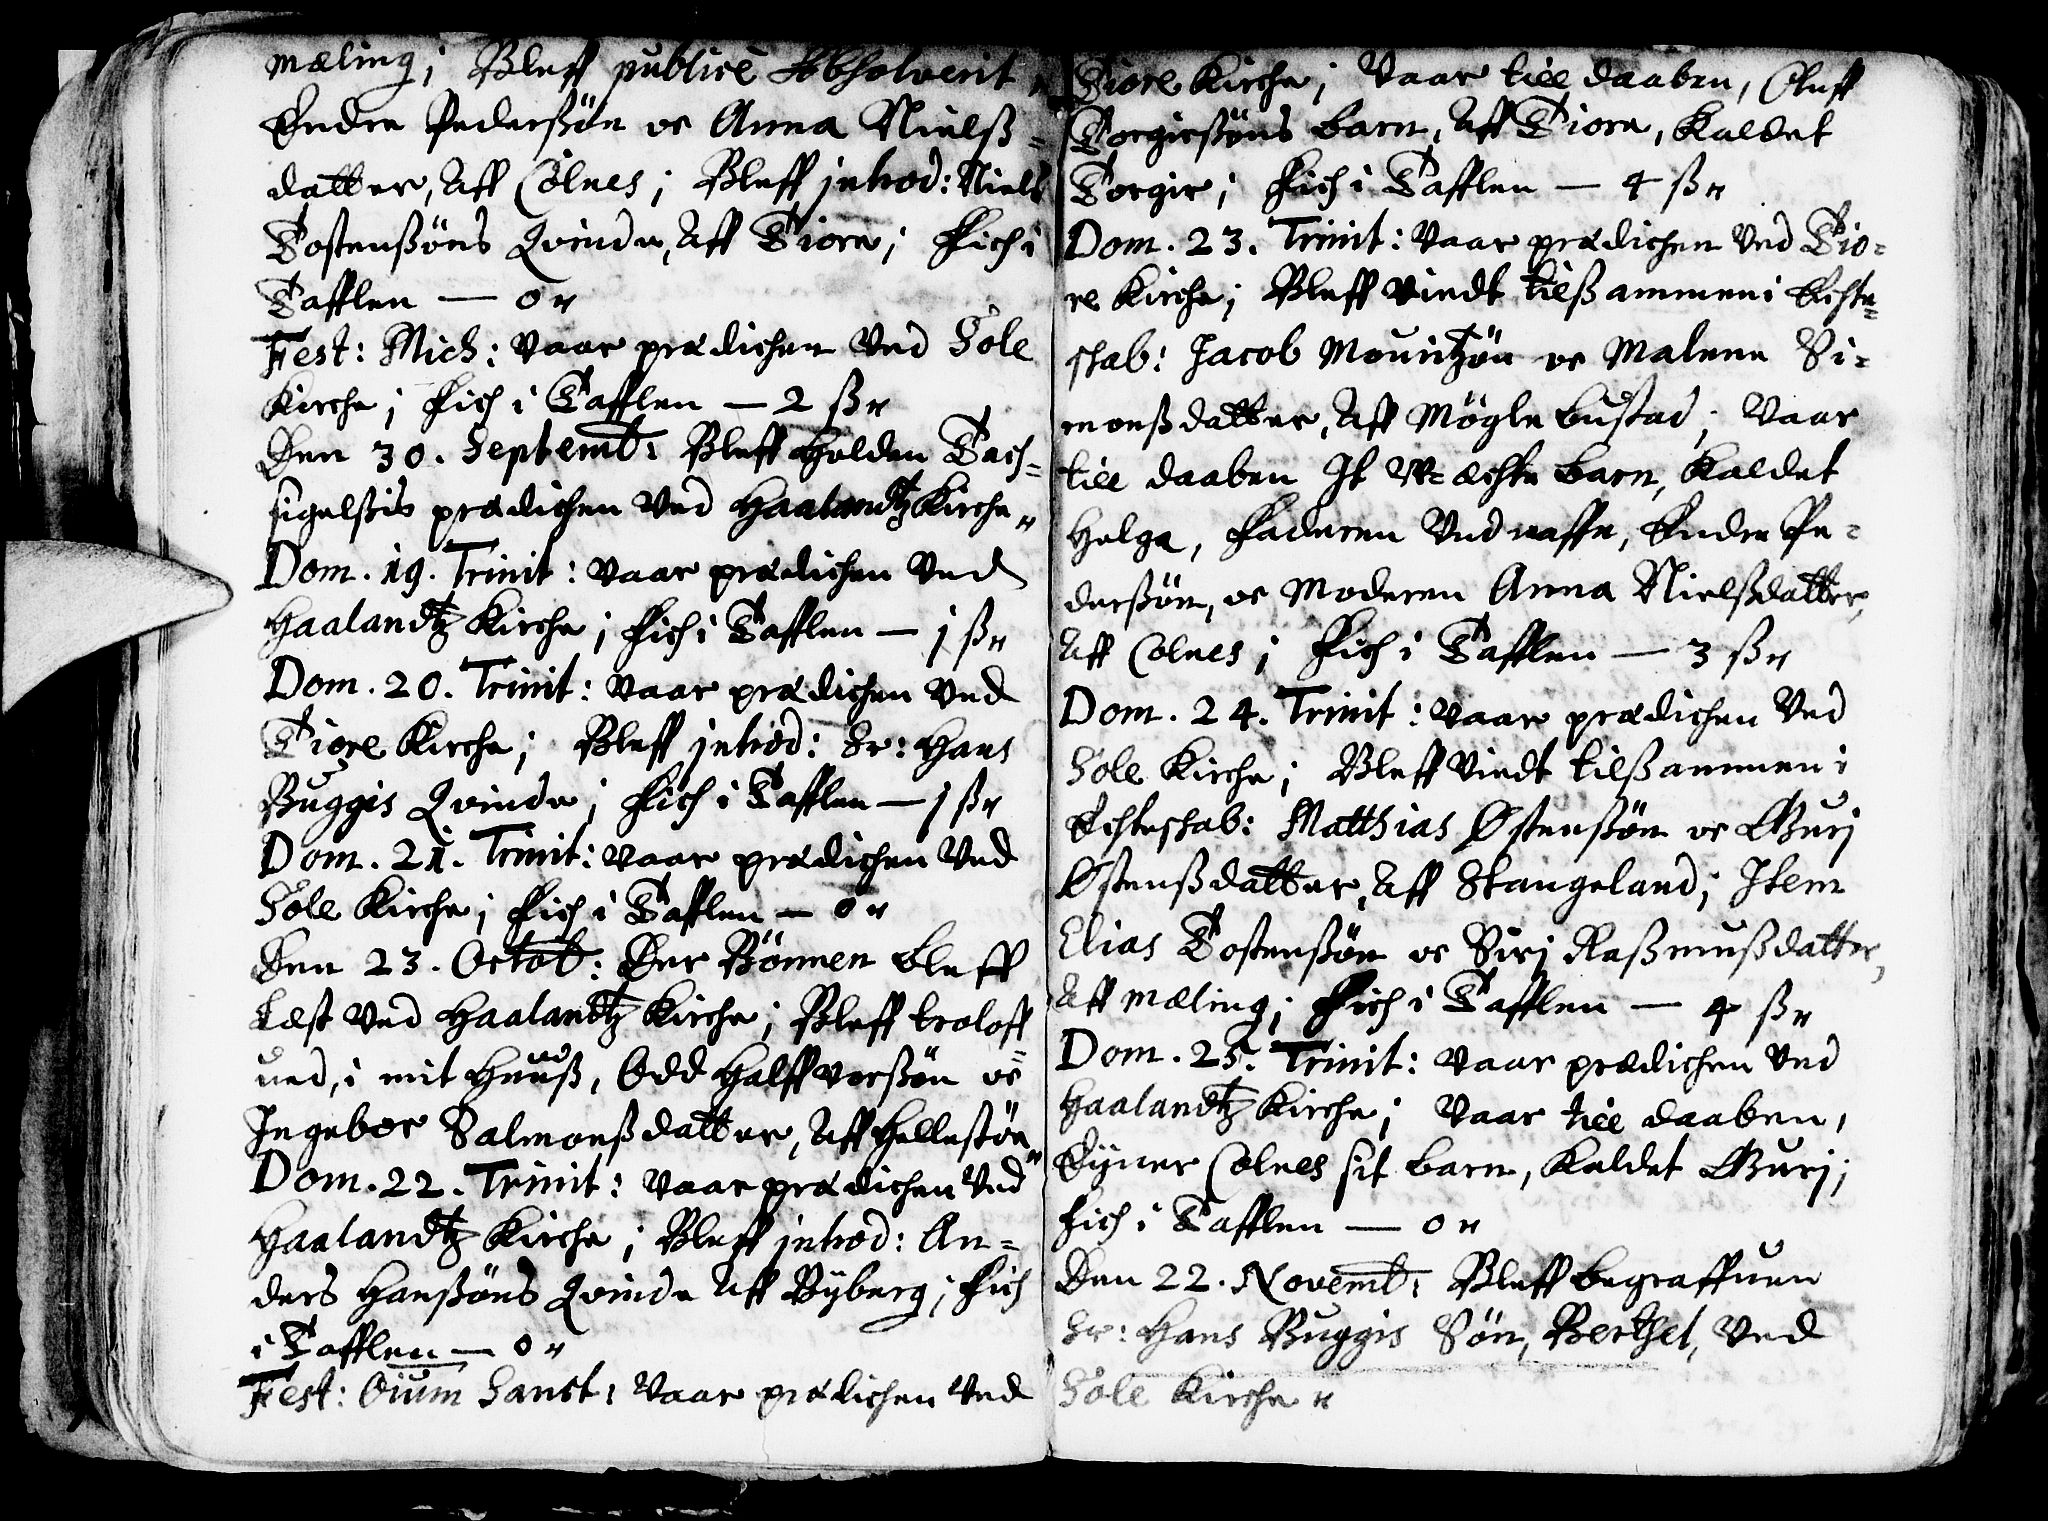 Mæling; Bleff publicè Abholverit,,
Endre Pederßøn oc Anna Nielß=
datter, Aff Colnes; Bleff jntrod: Niels
Tostenßøns Qvinde, Aff Tiore; Fich i
Tafflen — 0 ,,
Fest: Mich: Vaar prædichen Ved Sole
Kirche; Fich i Tafflen — 2 ß ,,
Den 30. Septemb: Bleff Holden Tach=
sigelßis prædichen Ved Haalandtz Kirche ,,
Dom. 19. Trinit: Vaar prædichen Ved
Haalandtz Kirche; Fich i Tafflen — 1 ß ,,
Dom. 20. Trinit: Vaar prædichen Ved
Tiore Kirche; Bleff jntrod: Sr: Hans
Buggis Qvinde; Fich i Tafflen — 1 ß ,,
Dom. 21. Trinit: Vaar prædichen Ved
Sole Kirche; Fich i Tafflen — 0 ,,
Den 23. Octob: Der Bønnen bleff
Læst Ved Haalandtz Kirche; Bleff troloff
ued, i mit Huuß, Odd Halffvorßøn oc
Ingebor Salmonßdatter, Aff Hellestøe ,,
Dom. 22. Trinit: Vaar prædichen Ved
Haalandtz Kirche; Bleff jntrod: An=
ders Hanßøns Qvinde Aff Ryberg; Fich
i Tafflen — 0 ,,
Fest: Oium Sanct: Vaar prædichen Ved
Tiore Kirche; Vaar till daaben, Oluff
Torgirßøns barn, Aff Tiore, Kaldet
Torgir; Fich i Tafflen — 4 ß ,,
Dom. 23. Trinit: Vaar prædichen Ved Tio=
re Kirche; Bleff Viedt tilßammen i Echte=
skab: Jacob Mouritzøn oc Malene Si=
monßdatter, Aff Møglebustad; Vaar
till daaben It U=æchte barn, Kaldet
Helga, Faderen Vdneffte, Endre Pe=
derßøn, oc Moderen Anna Nielßdatter,
Aff Colnes; Fich i Tafflen — 3 ß ,,
Dom. 24. Trinit: Vaar prædichen Ved
Sole Kirche; Bleff Viedt tilßammen i
Echteskab: Matthias Østenßøn oc Gurj
Østenßdatter, Aff Stangeland; Item
Elias Tostenßøn oc Sirj Raßmußdatter,
Aff Mæling; Fich i Tafflen — 4 ß ,,
Dom. 25. Trinit: Vaar prædichen Ved
Haalandtz Kirche; Vaar till daaben,
Eyner Colnes sit barn, Kaldet Gurj;
Fich i Tafflen — 0 ,,
Den 22. Novemb: Bleff begraffuen
Sr: Hans Buggis Søn, Berthel, Ved
Sole Kirche ,,